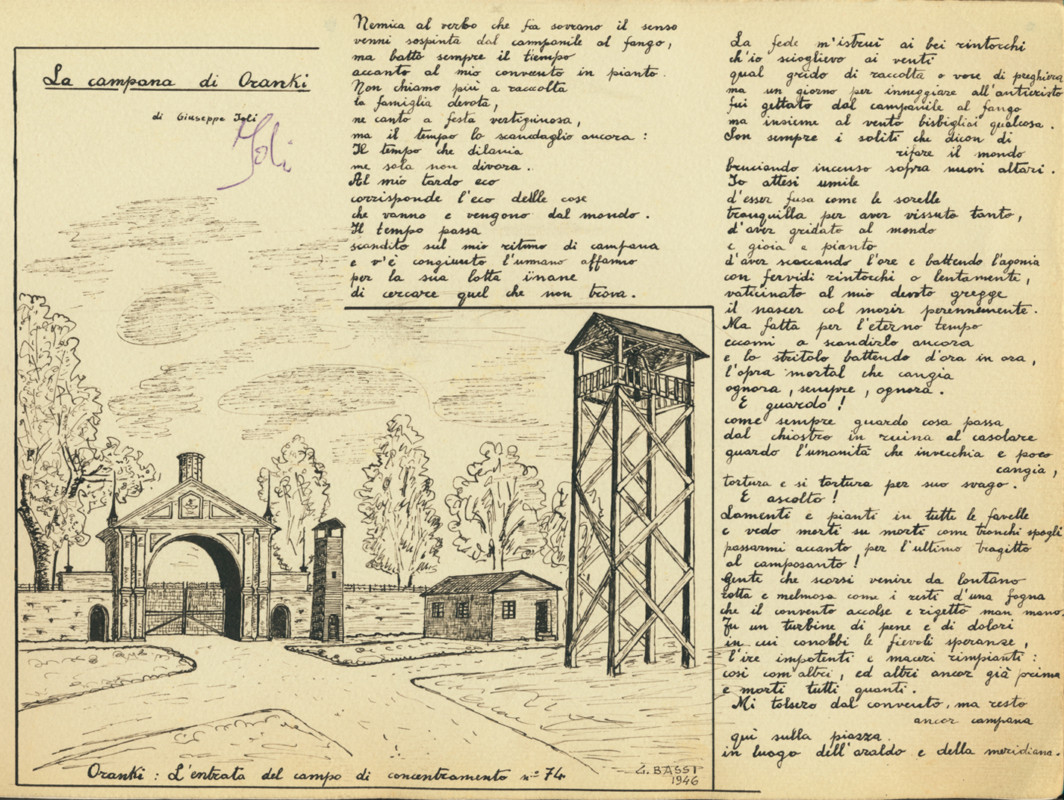 La campana di Oranki
di Giuseppe Joli
Joli
Nemica al verbo che fia sovrano il senso
venni sospinta dal campanile al fango,
ma batto sempre il tiempo
accanto al mio convento in pianto.
Non chiamo piu' a raccolta
la famiglia devota,
ne canto a festa vertiginosa,
ma il tempo lo scandaglio ancora :
Il tempo che dilania
me sola non divora.
Al mio tardo eco
corrisponde l'eco delle cose
che vanno e vengono dal mondo.
Il tempo passa
scandito sul mio ritmo di campana
e v'è congiunto l'umano affanno
per la sua lotta inane
di cercare quel che non trova.
La fede m'istruì ai bei rintocchi
ch'io scioglievo ai venti
qual grido di raccolta o voce di preghiera
ma un giorno per inneggiare all'anticristo
fui gettata dal campanile al fango
ma insieme al vento bisbigliai qualcosa.
Son sempre i soliti che dicon di
rifare il mondo
bruciando incenso sopra nuovi altari.
Io attesi umile
d'esser fusa come le sorelle
tranquilla per aver vissuto tanto,
d'aver gridato al mondo
e gioia e pianto
d'aver scoccando l'ore e battendo l'agonia
con fervidi rintocchi o lentamente,
vaticinato al mio devoto gregge
il nascer col morir perennemente.
Ma fatta per l'eterno tempo
eccomi a scandirlo ancora
e lo stritolo battendo d'ora in ora,
l'opra mortal che cangia
ognora, sempre, ognora.
E guardo !
come sempre guardo cosa passa
dal chiostro in ruina al casolare
guardo l'umanità che invecchia e poco
cangia,
tortura e si tortura per suo svago.
E ascolto !
Lamenti e pianti in tutte le favelle
e vedo morti su morti come tronchi spogli
passarmi accanto per l'ultimo tragitto
al camposanto !
Gente che scorsi venire da lontano
rotta e melmosa come i resti d'una fogna
che il convento accolse e rigettò man mano.
Fu un turbine di pene e di dolori
in cui conobbi le fievoli speranze,
l'ire impotenti e maceri rimpianti :
così com'altri, ed altri ancor già prima
e morti tutti quanti.
Mi tolsero dal convento, ma resto
ancor campana
qui sulla piazza
in luogo dell'araldo e della meridiana.
Oranki : L'entrata del campo di concentramento n° 74
G. BASSI
1946